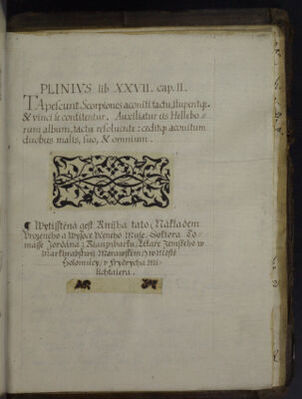 PLINIVS lib XXVII. cap. II.
TApescunt Scorpiones aconiti tactu, stupentq;
& vinci se confitentur. Auxiliatur iis Hellebo=
rum album, tactu resoluente: ceditq; aconitum
duobus malis, suo, & omnium.
¶ Wytisstěna gest Knijha tato, Nákladem
Vrozeného a Wysoce Včeného Muže, Doktora To=
máše Jordána z Klauznburku, Lékaře Zemského w
Markhrabstwij Morawském, w Městě
Holomúcy, v Frydrycha Mi=
lichtalera.